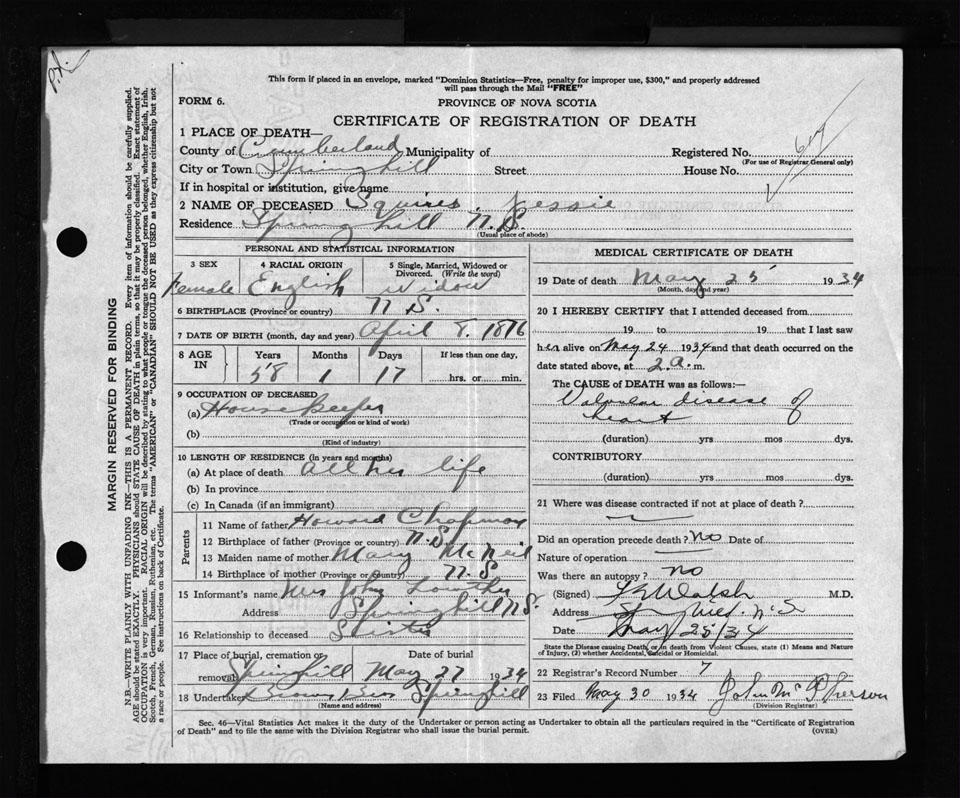 This form if placed in an envelope, marked "Dominion Statistics—Free, penalty for improper use, $300," and properly addressed
will pass through the Mail "FREE"
FORM 6.
PROVINCE OF NOVA SCOTIA
CERTIFICATE OF REGISTRATION OF DEATH
1 PLACE OF DEATH—
County of Cumberland Municipality of Registered No.
(For use of Registrar General only)
City or Town Springhill Street House No.
If in hospital or institution, give name
2 NAME OF DECEASED Squires, Jessie
Residence Spring hill N.S.
(Usual place of abode)
PERSONAL AND STATISTICAL INFORMATION
3 SEX 4 RACIAL ORIGIN 5 Single, Married, Widowed or
Divorced. (Write the word)
Female English Widow
6 BIRTHPLACE (Province or country) N S.
7 DATE OF BIRTH (month, day and year) April 8. 1876
8 AGE IN Years Months Days If less than one day,
58 1 17 hrs. or min.
9 OCCUPATION OF DECEASED
(a) Housekeeper
(Trade or occupation or kind of work)
(b)
(Kind of industry)
10 LENGTH OF RESIDENCE (in years and months)
(a) At place of death all her life
(b) In province
(c) In Canada (if an immigrant)
Parents
11 Name of father Howard Chapman
12 Birthplace of father (Province or country) N.S.
13 Maiden name of mother Mary McNeil
14 Birthplace of mother (Province or Country) N.S
15 Informant's name Mrs John Lowther
Address Springhill N.S.
16 Relationship to deceased Sister
17 Place of burial, cremation or removal Date of burial
Springhill May 27 1934
18 Undertaker Brown Bros Springhill
(Name and address)
MEDICAL CERTIFICATE OF DEATH
19 Date of death May 25 1934
(Month, day and year)
20 I HEREBY CERTIFY that I attended deceased from
19 to 19 that I last saw
her alive on May 24 1934 and that death occurred on the
date stated above, at 2 a. m.
The CAUSE OF DEATH was as follows:—
Valvular disease of
heart
(duration) yrs mos dys.
CONTRIBUTORY
(duration) yrs. mos. dys.
21 Where was disease contracted if not at place of death?
Did an operation precede death? No Date of
Nature of operation
Was there an autopsy? no
(Signed) Walsh M.D.
Address N.S
Date May 25/34
State the Disease causing Death, or in death from Violent Causes, state (1) Means and Nature
of Injury, (2) whether Accidental, Suicidal or Homicidal.
22 Registrar's Record Number 7
23 Filed May 30 1934 John McPherson
(Division Registrar)
Sec. 46—Vital Statistics Act makes it the duty of the Undertaker or person acting as Undertaker to obtain all the particulars required in the "Certificate of Registration
of Death" and to file the same with the Division Registrar who shall issue the burial permit. (OVER)
MARGIN RESERVED FOR BINDING
N.B.—WRITE PLAINLY WITH UNFADING INK—THIS IS A PERMANENT RECORD. Every item of information should be carefully supplied.
AGE should be stated EXACTLY. PHYSICIANS should STATE CAUSE OF DEATH in plain terms, so that it may be properly classified. Exact statement of
OCCUPATION is very important. RACIAL ORIGIN will be described by stating to what people or tongue the deceased person belonged, whether English, Irish,
Scotch, French, German, Russian, Ruthenian, etc. The terms "AMERICAN" or "CANADIAN" SHOULD NOT BE USED as they express citizenship but not
a race or people. See instructions on back of Certificate.